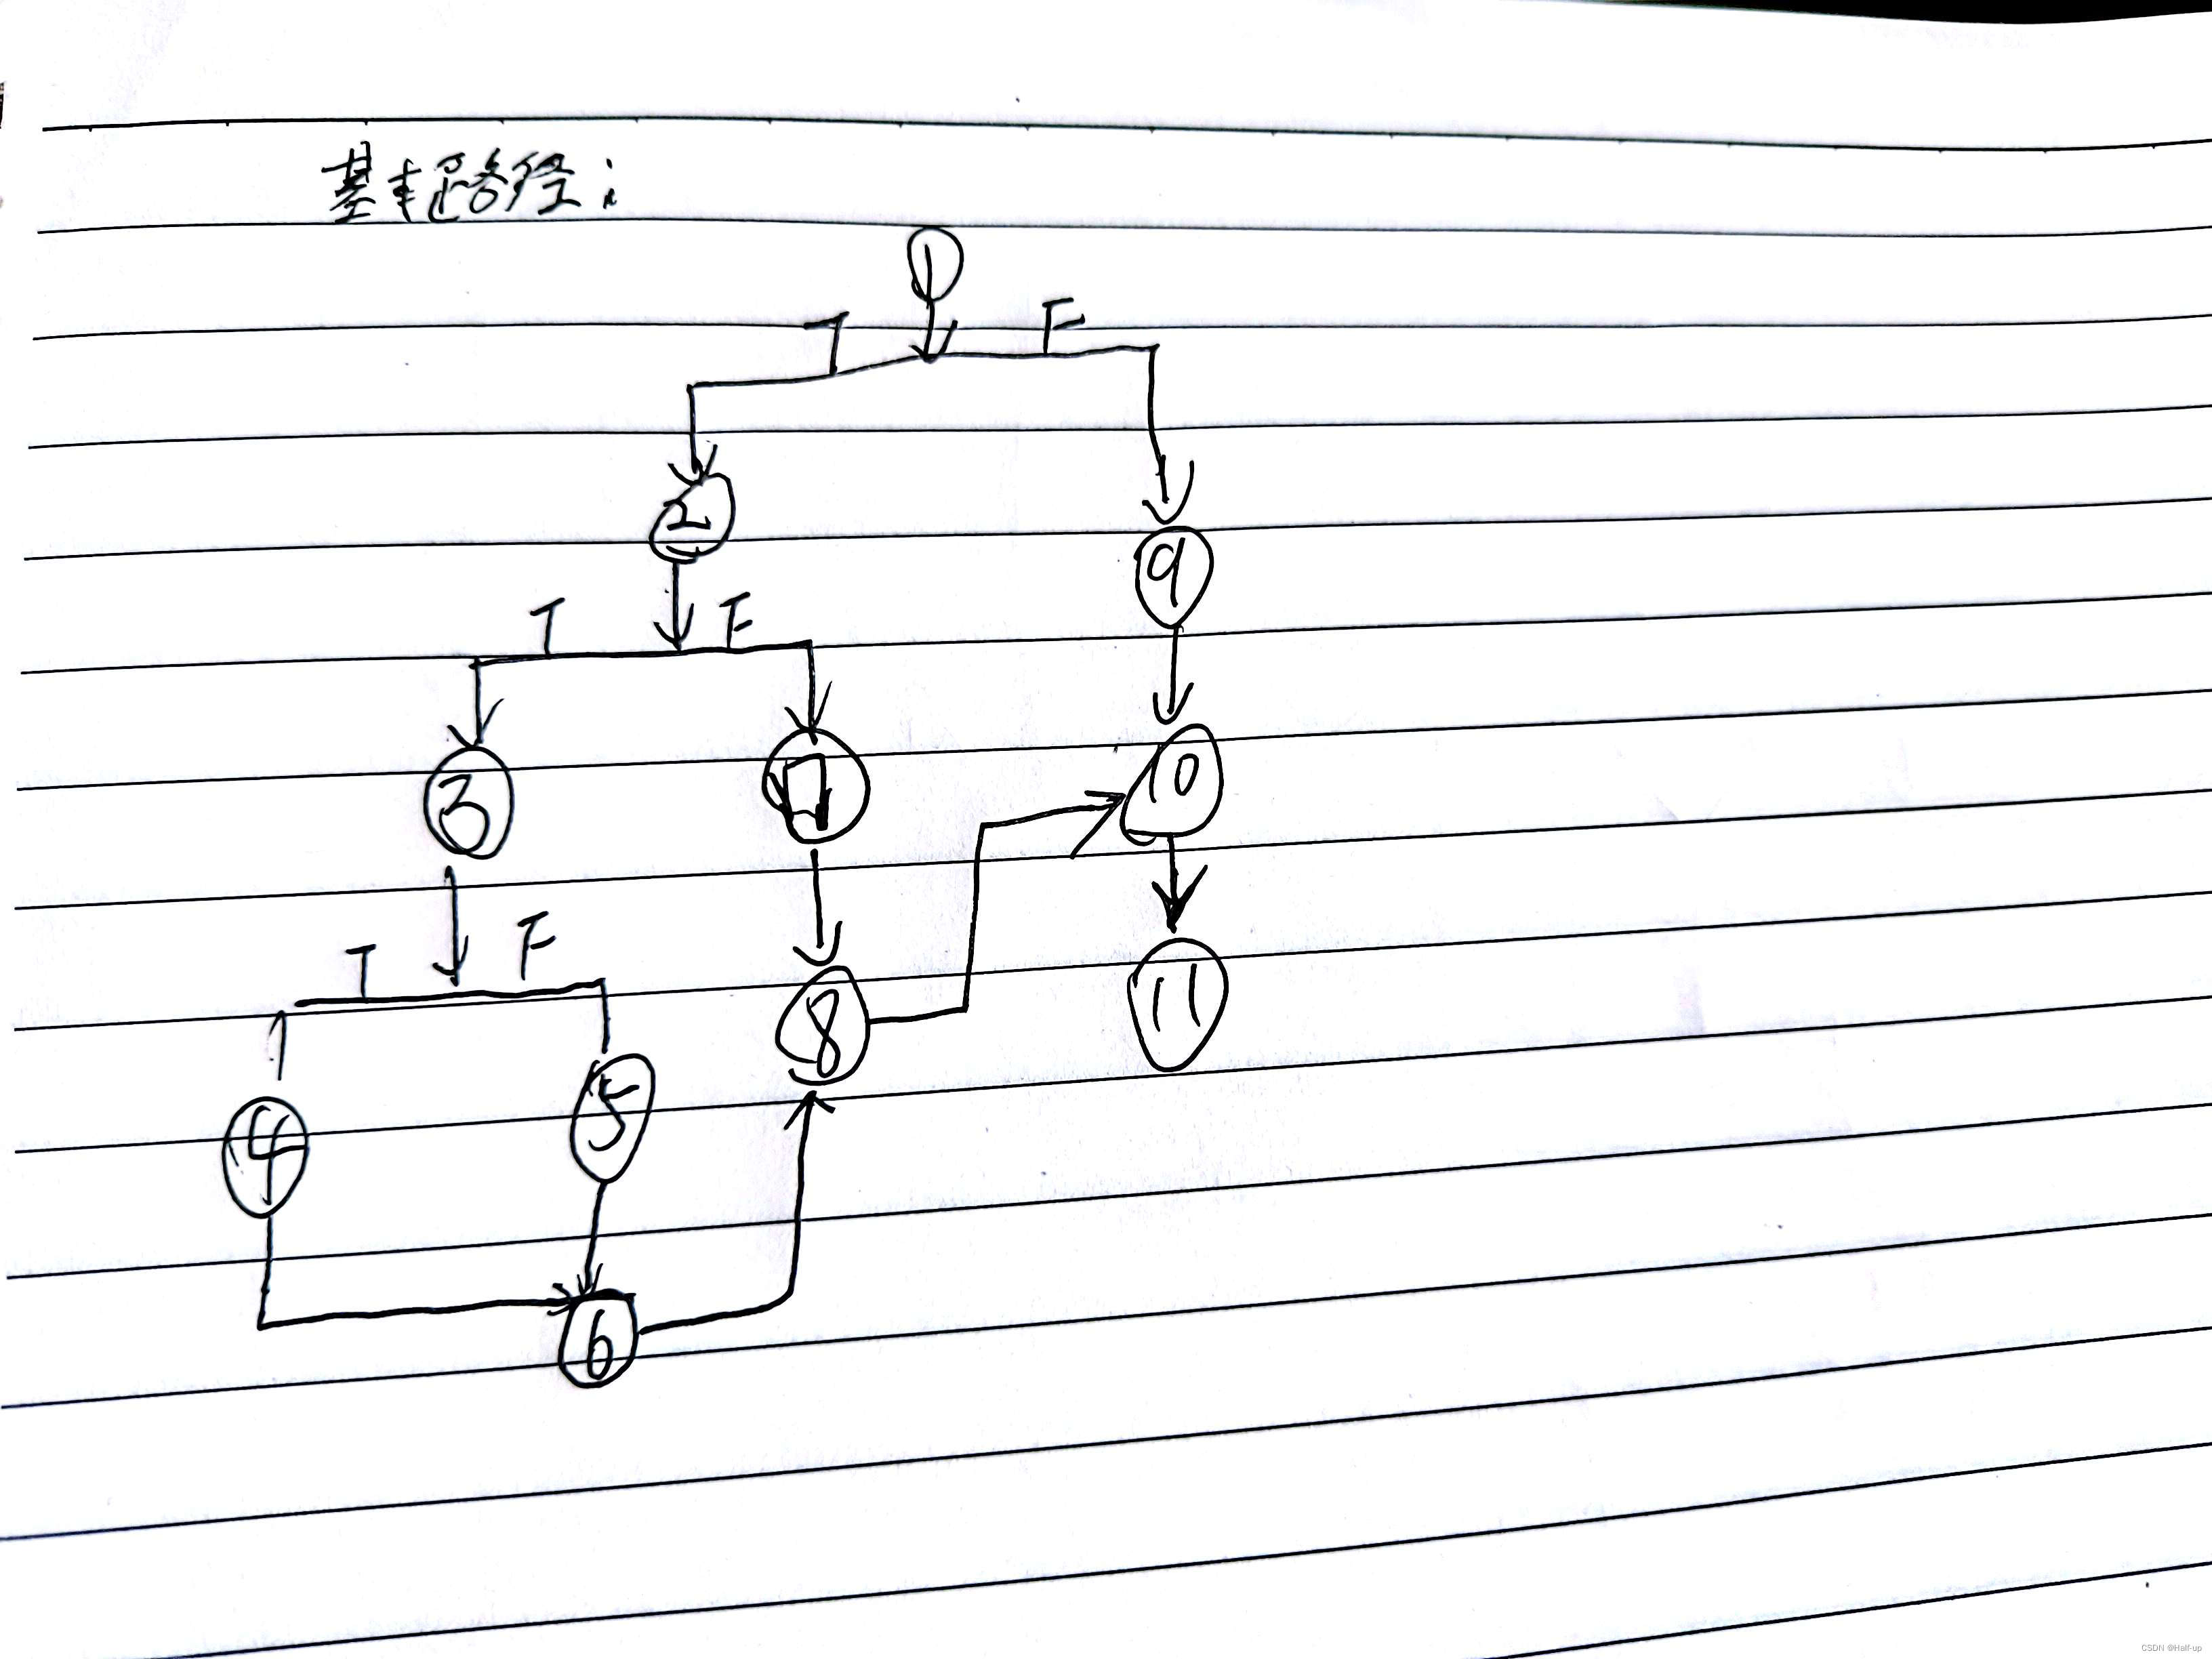 基本路径:
1
T F
2
9
T F
3 7 10
T F
8 11
4 5
6
CSDN @Half-up